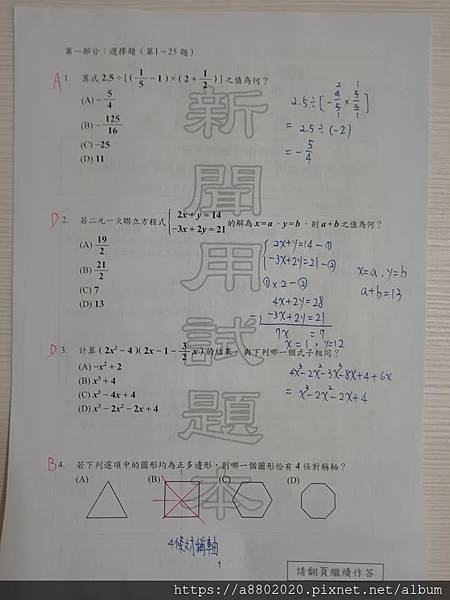 第一部分：選擇題（第1～25題）
A 1. 算式 2.5÷[(1/5－1)×(2＋1/2)] 之值為何？
(A) －5/4
(B) －125/16
(C) －25
(D) 11
2.5÷[－4/5×5/2]
= 2.5÷(-2)
= －5/4
D 2. 若二元一次聯立方程式 { 2x＋y＝14 －3x＋2y＝21 的解為 x＝a，y＝b，則 a＋b 之值為何？
(A) 19/2
(B) 21/2
(C) 7
(D) 13
{ 2x+y=14 －①
-3x+2y=21 －②
①×2－②
4x+2y=28
-3x+2y=21
7x = 7
x=1，y=12
x=a，y=b
a+b=13
D 3. 計算 (2x²－4)(2x－1－3/2 x) 的結果，與下列哪一個式子相同？
(A) －x²＋2
(B) x³＋4
(C) x³－4x＋4
(D) x³－2x²－2x＋4
4x³-2x²-3x³-8x+4+6x
= x³-2x²-2x+4
B 4. 若下列選項中的圖形均為正多邊形，則哪一個圖形恰有 4 條對稱軸？
(A) (B) (C) (D)
4條對稱軸
1
請翻頁繼續作答
新聞用試題本
https://a8802020.pixnet.net/album